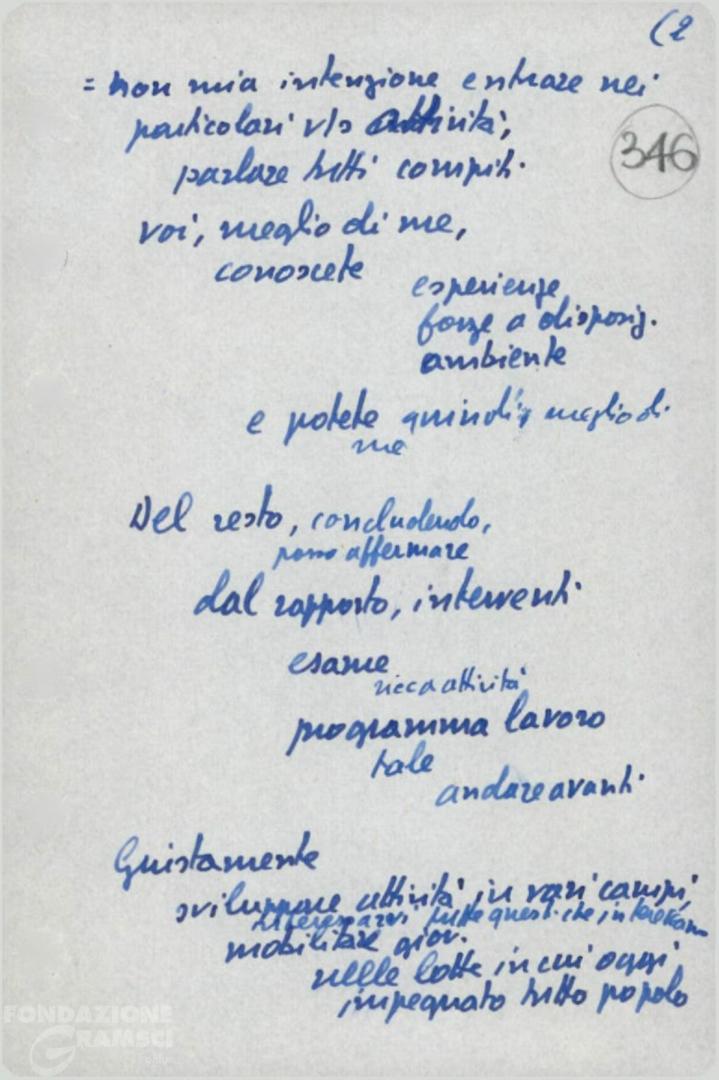 (2
= non mia intenzione entrare nei
particolari v/s attività,
346
parlare tutti compiti.
voi, meglio di me,
conoscete
esperienze
forze a disposiz.
ambiente
e potete quindi, meglio di
me
Del resto, concludendo,
posso affermare
dal rapporto, interventi
esame
ricca attività
programma lavoro
tale
andare avanti
Giustamente
sviluppare attività in vari campi,
interessarsi tutte questi che
mobilitare giov.
nelle lotte in cui oggi,
impegnato tutto popolo
FONDAZIONE
GRAMSCI